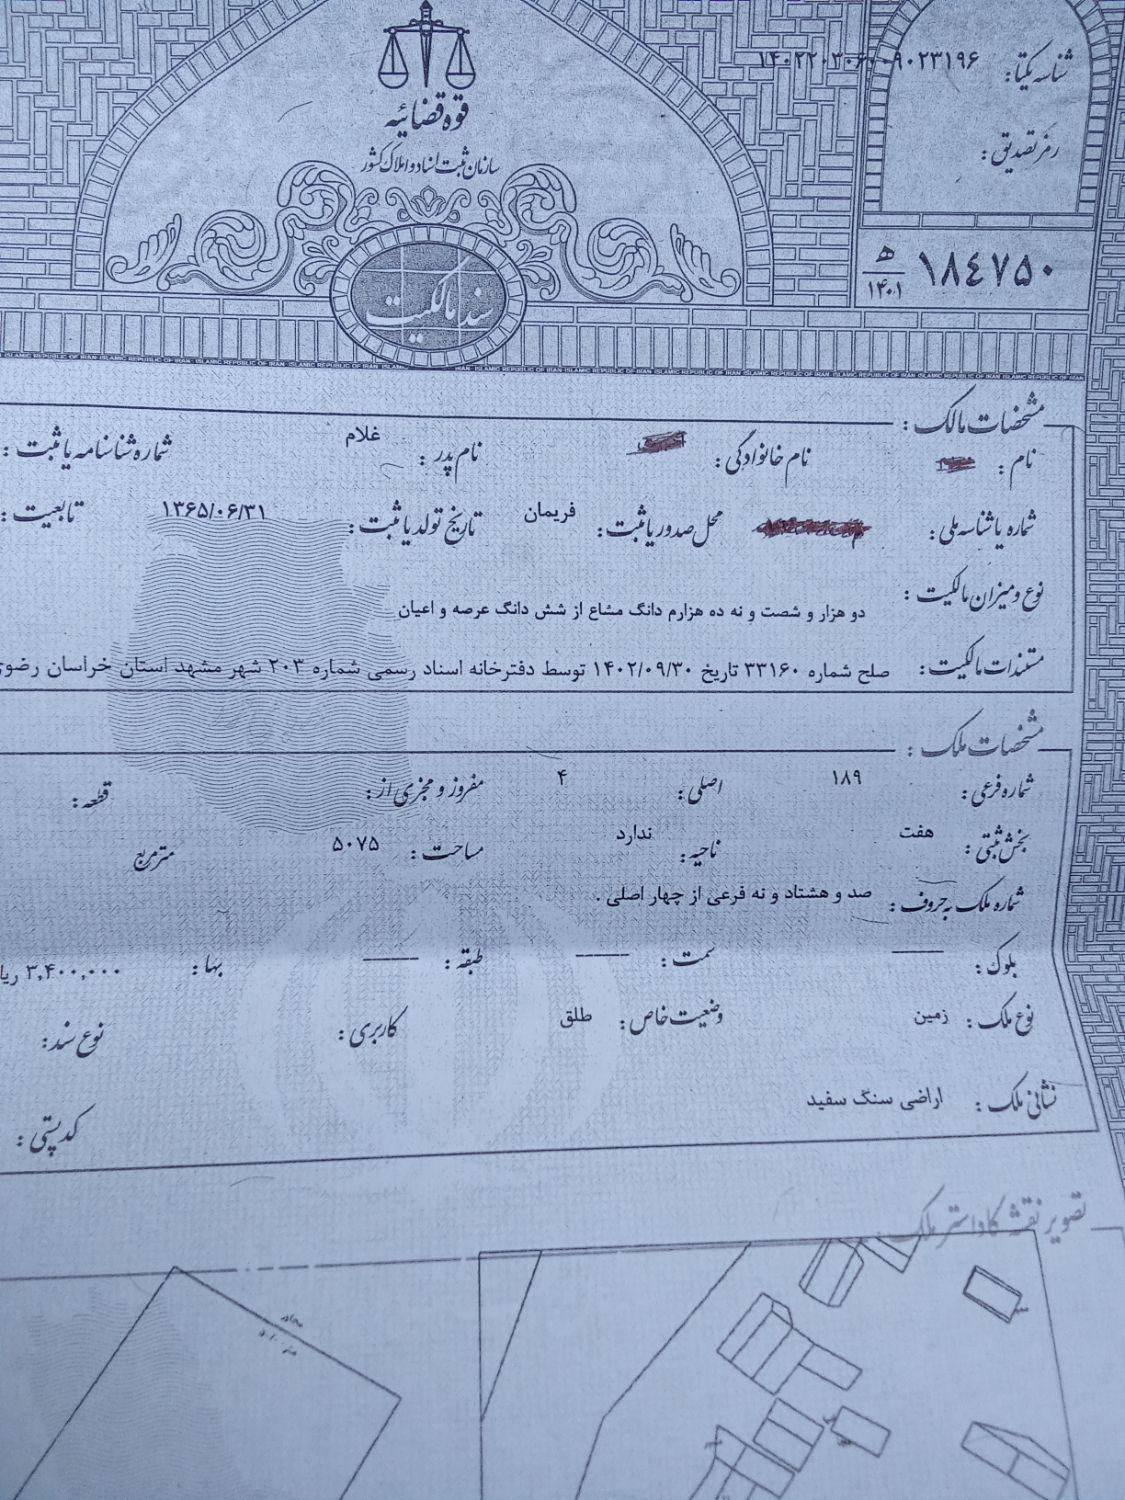 شناسه یکتا: ۱۴۰۲۲۰۳۰۶۰۰۹۰۲۳۱۹۶
رمز تصدیق:
قوه قضائیه
سازمان ثبت اسناد و املاک کشور
ه‍ ۱۴۰۱ ۱۸٤۷۵۰
سند مالکیت
ISLAMIC REPUBLIC OF IRAN · ISLAMIC REPUBLIC OF IRAN · ISLAMIC REPUBLIC OF IRAN
مشخصات مالک:
نام: نام خانوادگی: نام پدر: غلام شماره شناسنامه یا ثبت:
شماره یا شناسه ملی: محل صدور یا ثبت: فریمان تاریخ تولد یا ثبت: ۱۳۶۵/۰۶/۳۱ تابعیت:
نوع و میزان مالکیت: دو هزار و شصت و نه ده هزارم دانگ مشاع از شش دانگ عرصه و اعیان
مستندات مالکیت: صلح شماره ۳۳۱۶۰ تاریخ ۱۴۰۲/۰۹/۳۰ توسط دفترخانه اسناد رسمی شماره ۲۰۳ شهر مشهد استان خراسان رضوی
مشخصات ملک:
شماره فرعی: ۱۸۹ اصلی: ۴ مفروز و مجزی از: قطعه:
بخش ثبتی: هفت ناحیه: ندارد مساحت: ۵۰۷۵ مترمربع
شماره ملک به حروف: صد و هشتاد و نه فرعی از چهار اصلی .
بلوک: ——— سمت: ——— طبقه: ——— بها: ۳,۴۰۰,۰۰۰ ریا
نوع ملک: زمین وضعیت خاص: طلق کاربری: نوع سند:
نشانی ملک: اراضی سنگ سفید
کد پستی:
تصویر نقشه کاداستر ملک:
مجاور